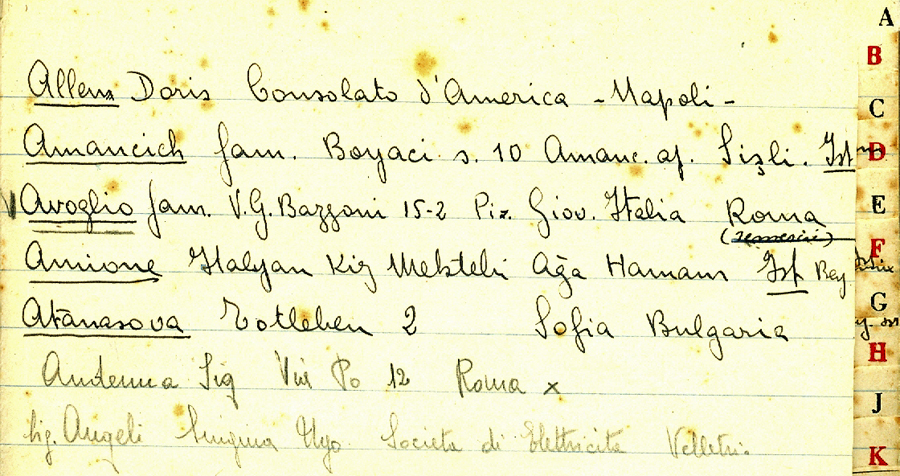 A
B
Allen Doris Consolato d'America - Napoli -
C
Amancich fam. Boyaci s. 10 Amanc. ap. Şişli. Ist
D
Avoglio fam. V.G. Bazzoni 15-2 Piz. Giov. Italia Roma
E
F
Amione Italyan Kiz Mektebi Ağa Hamam Ist Bey
G
Atanasova Totleben 2 Sofia Bulgaria
H
Antenna Sig Via Po 12 Roma x
J
Sig. Angeli Ugo Societa di Elettricita Velletri.
K